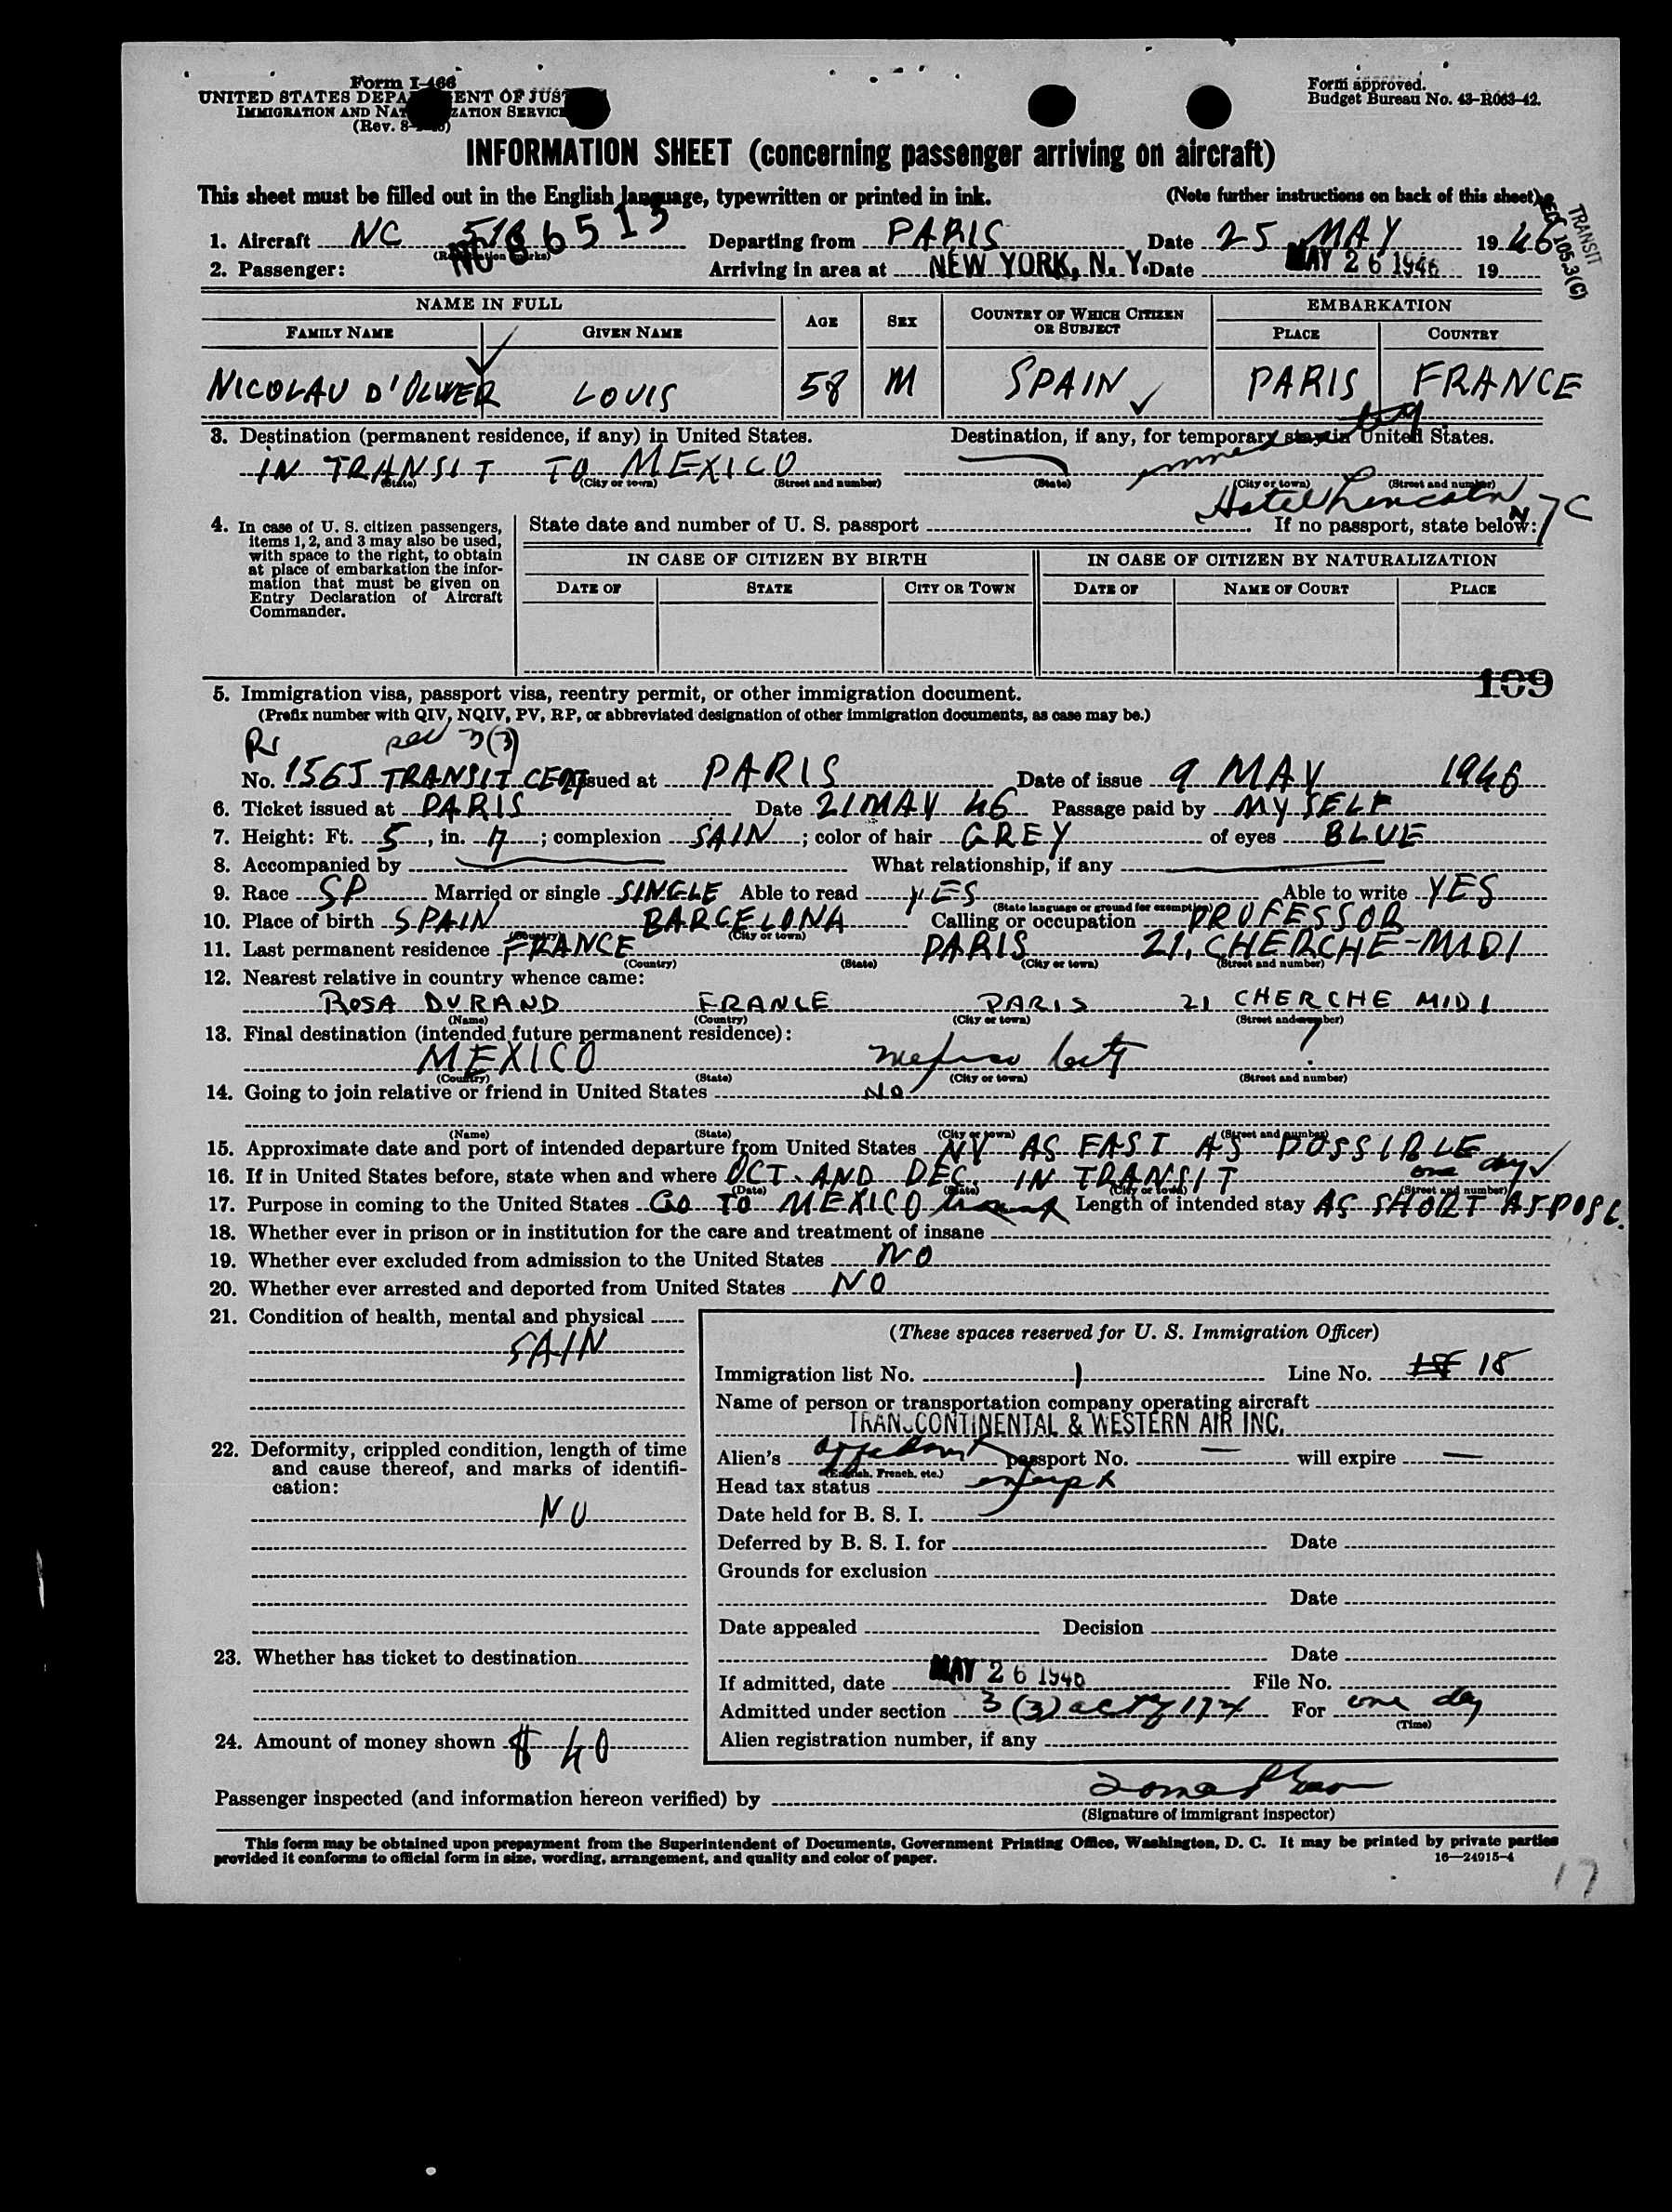 Form I-466
UNITED STATES DEPA ENT OF JUS
IMMIGRATION AND NAT ZATION SERVICE
(Rev. 8-
Form approved.
Budget Bureau No. 43-R063-42.
INFORMATION SHEET (concerning passenger arriving on aircraft)
This sheet must be filled out in the English language, typewritten or printed in ink. (Note further instructions on back of this sheet)
TRANSIT
105.3(C)
1. Aircraft NC Departing from PARIS Date 25 MAY 1946
(Registration marks)
2. Passenger: Arriving in area at NEW YORK, N. Y. Date MAY 26 1946 19
NAME IN FULL AGE SEX COUNTRY OF WHICH CITIZEN OR SUBJECT EMBARKATION
FAMILY NAME GIVEN NAME PLACE COUNTRY
NICOLAU D'OLWER LOUIS 58 M SPAIN PARIS FRANCE
3. Destination (permanent residence, if any) in United States. Destination, if any, for temporary stay in United States.
IN TRANSIT TO MEXICO
(State) (City or town) (Street and number) (State) (City or town) (Street and number)
Hotel Lincoln NYC
4. In case of U. S. citizen passengers, items 1, 2, and 3 may also be used, with space to the right, to obtain at place of embarkation the information that must be given on Entry Declaration of Aircraft Commander.
State date and number of U. S. passport If no passport, state below:
IN CASE OF CITIZEN BY BIRTH IN CASE OF CITIZEN BY NATURALIZATION
DATE OF STATE CITY OR TOWN DATE OF NAME OF COURT PLACE
109
5. Immigration visa, passport visa, reentry permit, or other immigration document.
(Prefix number with QIV, NQIV, PV, RP, or abbreviated designation of other immigration documents, as case may be.)
3(3)
No. 156J TRANSIT CERT Issued at PARIS Date of issue 9 MAY 1946
6. Ticket issued at PARIS Date 21 MAY 46 Passage paid by MY SELF
7. Height: Ft. 5, in. ; complexion SAIN; color of hair GREY of eyes BLUE
8. Accompanied by What relationship, if any
9. Race SP Married or single SINGLE Able to read YES Able to write YES
(State language or ground for exemption)
10. Place of birth SPAIN BARCELONA Calling or occupation PROFESSOR
(Country) (City or town)
11. Last permanent residence FRANCE PARIS 21, CHERCHE-MIDI
(Country) (State) (City or town) (Street and number)
12. Nearest relative in country whence came:
ROSA DURAND FRANCE PARIS 21 CHERCHE MIDI
(Name) (Country) (City or town) (Street and number)
13. Final destination (intended future permanent residence):
MEXICO Mexico City
(Country) (State) (City or town) (Street and number)
14. Going to join relative or friend in United States NO
(Name) (State) (City or town) (Street and number)
15. Approximate date and port of intended departure from United States NY AS FAST AS POSSIBLE
one day
16. If in United States before, state when and where OCT. AND DEC. IN TRANSIT
(Date) (State) (City or town) (Street and number)
17. Purpose in coming to the United States GO TO MEXICO transit Length of intended stay AS SHORT AS POSS.
18. Whether ever in prison or in institution for the care and treatment of insane
19. Whether ever excluded from admission to the United States NO
20. Whether ever arrested and deported from United States NO
21. Condition of health, mental and physical
SAIN
22. Deformity, crippled condition, length of time and cause thereof, and marks of identification:
NO
23. Whether has ticket to destination
24. Amount of money shown $ 40
(These spaces reserved for U. S. Immigration Officer)
Immigration list No. 1 Line No. 18
Name of person or transportation company operating aircraft
TRANSCONTINENTAL & WESTERN AIR INC.
Alien's affidavit passport No. — will expire —
(English, French, etc.)
Head tax status exempt
Date held for B. S. I.
Deferred by B. S. I. for Date
Grounds for exclusion
Date
Date appealed Decision
Date
If admitted, date MAY 26 1946 File No.
Admitted under section 3 (3) act of 1924 For one day
(Time)
Alien registration number, if any
Passenger inspected (and information hereon verified) by
(Signature of immigrant inspector)
This form may be obtained upon prepayment from the Superintendent of Documents, Government Printing Office, Washington, D. C. It may be printed by private parties
provided it conforms to official form in size, wording, arrangement, and quality and color of paper.
16—24915-4
17